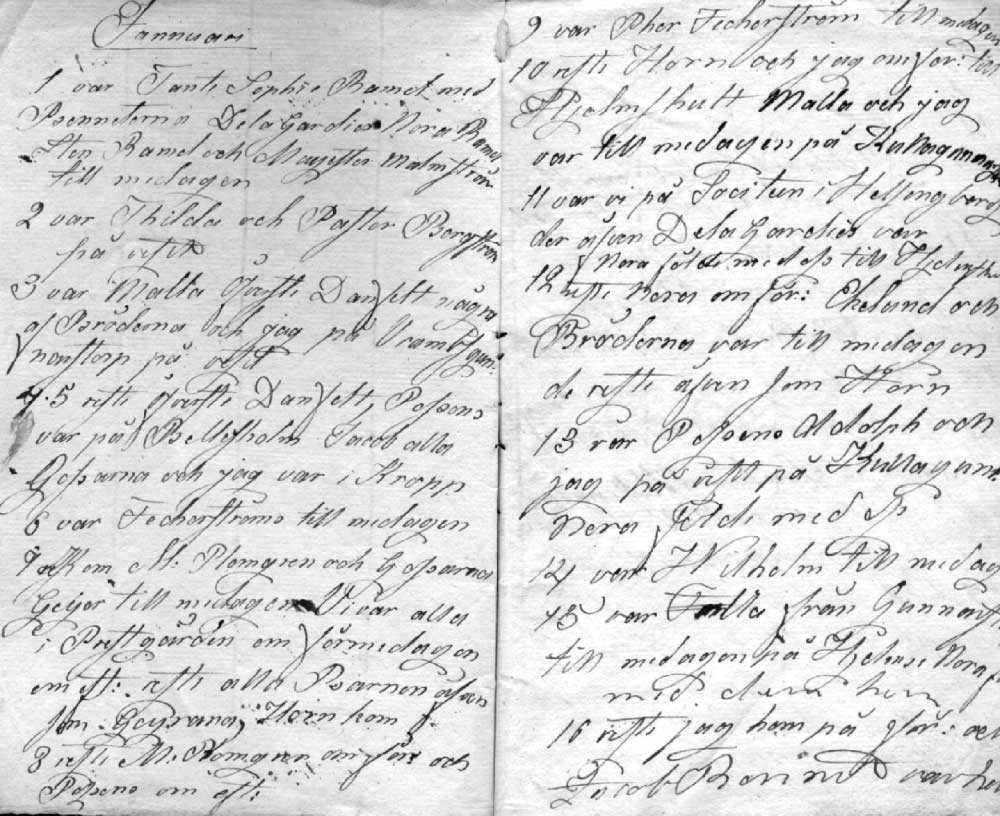 Jannuari
1 var Tante Sophie Ramel med
Pssenneterna De la Gardie Nora Ramel
Sten Ramel och Magister Malmström
till medagen
2 var Thilda och Paster Borgström
på visit
3 var Malla Öfverste Danfelt några
af Bröderna och jag på Vrambsgun-
narstorp på visit
4.5 reste Öfverste Danfelt, Possens
var på Bellesholm Jacob alla
Gossarna och jag var i Kropp
6 var Fecherströms till medagen
7 Kom M: Blomgren och Gossarna
Geijer till medagen Vi var alla
i Prestgården om förmedagen
om eft: reste alla Barnen äfven
som Geijrarna, Horn kom
8 reste M: Blomgren om för och
Possens om eft:
9 var Pher Fecherström till medagen
10 reste Horn och jag om för: till
Hjelmshult Malla och jag
var till medagen på Kullagunnars
11 var vi på Societen i Helsingborg
der äfven De la Gardies var
Nora följde med oss till Hjelmshu
12 reste Nora om för: Ekelund och
Bröderna var till medagen
de reste äfven som Horn
13 var Possens Adolph och
jag på visit på Kullagunn
Nora följde med oss
14 var Wilhelm till medag
15 var Malla från Gunnars
till medagen på Hjelms Nora
med dem hem
16 reste jag hem på för: och
Jacob var he